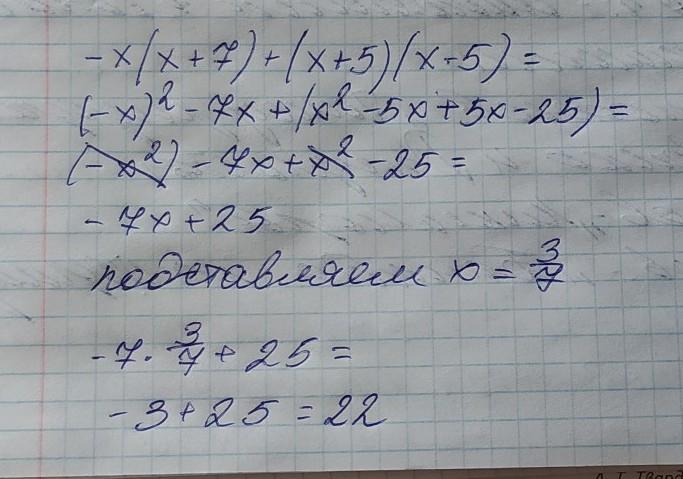 -x(x+7)+(x+5)(x-5)=
(-x)² - 7x + (x² - 5x + 5x - 25) =
(-x²) - 7x + x² - 25 =
- 7x + 25
подставляем x = 3/7
-7 · 3/7 + 25 =
-3 + 25 = 22